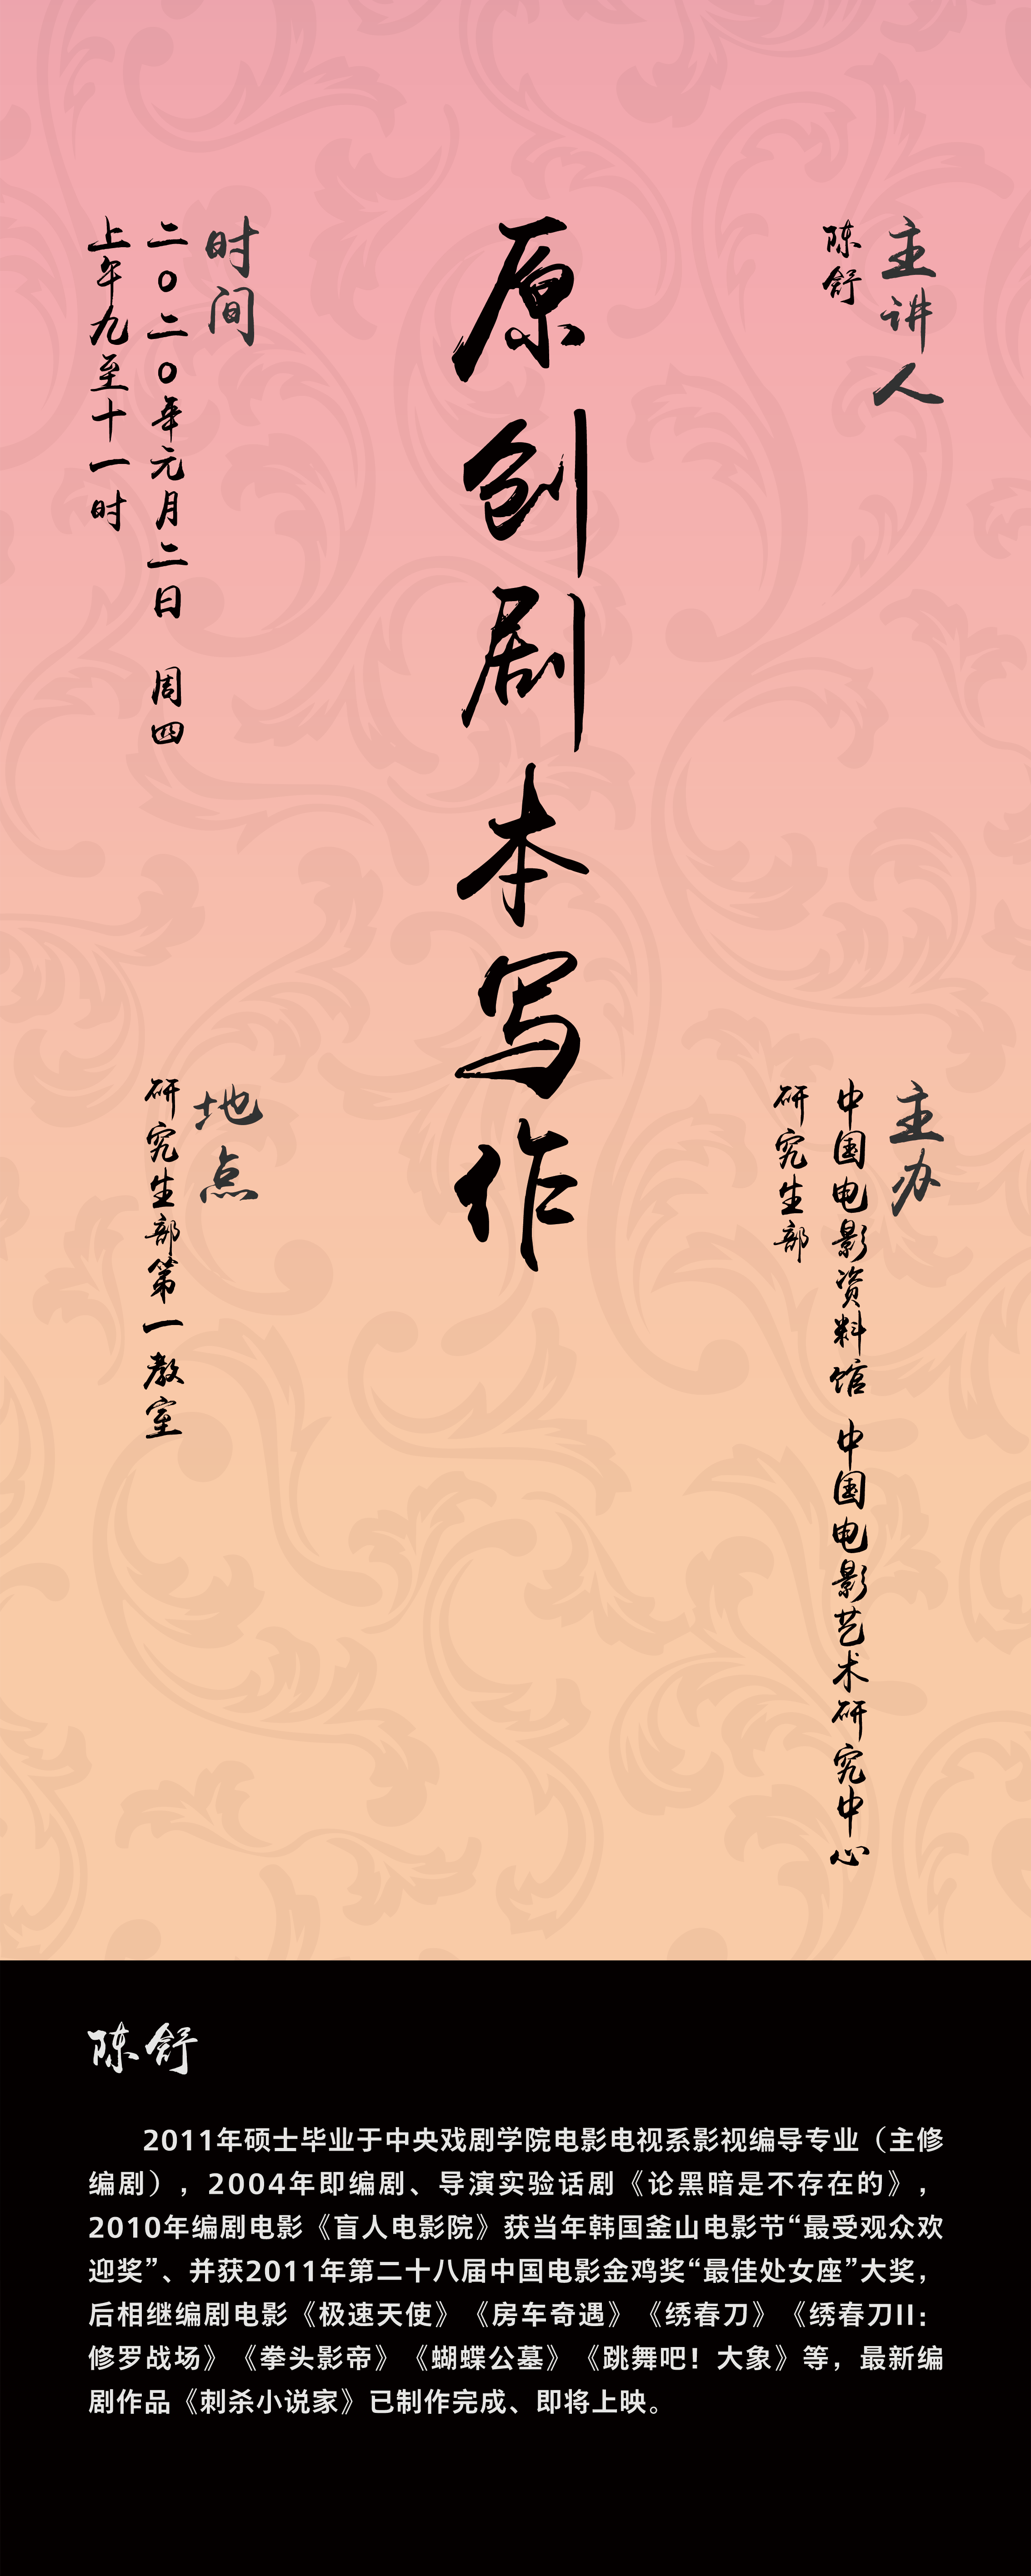 主讲人
陈舒
原创剧本写作
时间
二〇二〇年元月二日 周四
上午九至十一时
主办
中国电影资料馆 中国电影艺术研究中心
研究生部
地点
研究生部第一教室
陈舒
2011年硕士毕业于中央戏剧学院电影电视系影视编导专业（主修
编剧），2004年即编剧、导演实验话剧《论黑暗是不存在的》，
2010年编剧电影《盲人电影院》获当年韩国釜山电影节“最受观众欢
迎奖”、并获2011年第二十八届中国电影金鸡奖“最佳处女座”大奖，
后相继编剧电影《极速天使》《房车奇遇》《绣春刀》《绣春刀II：
修罗战场》《拳头影帝》《蝴蝶公墓》《跳舞吧！大象》等，最新编
剧作品《刺杀小说家》已制作完成、即将上映。